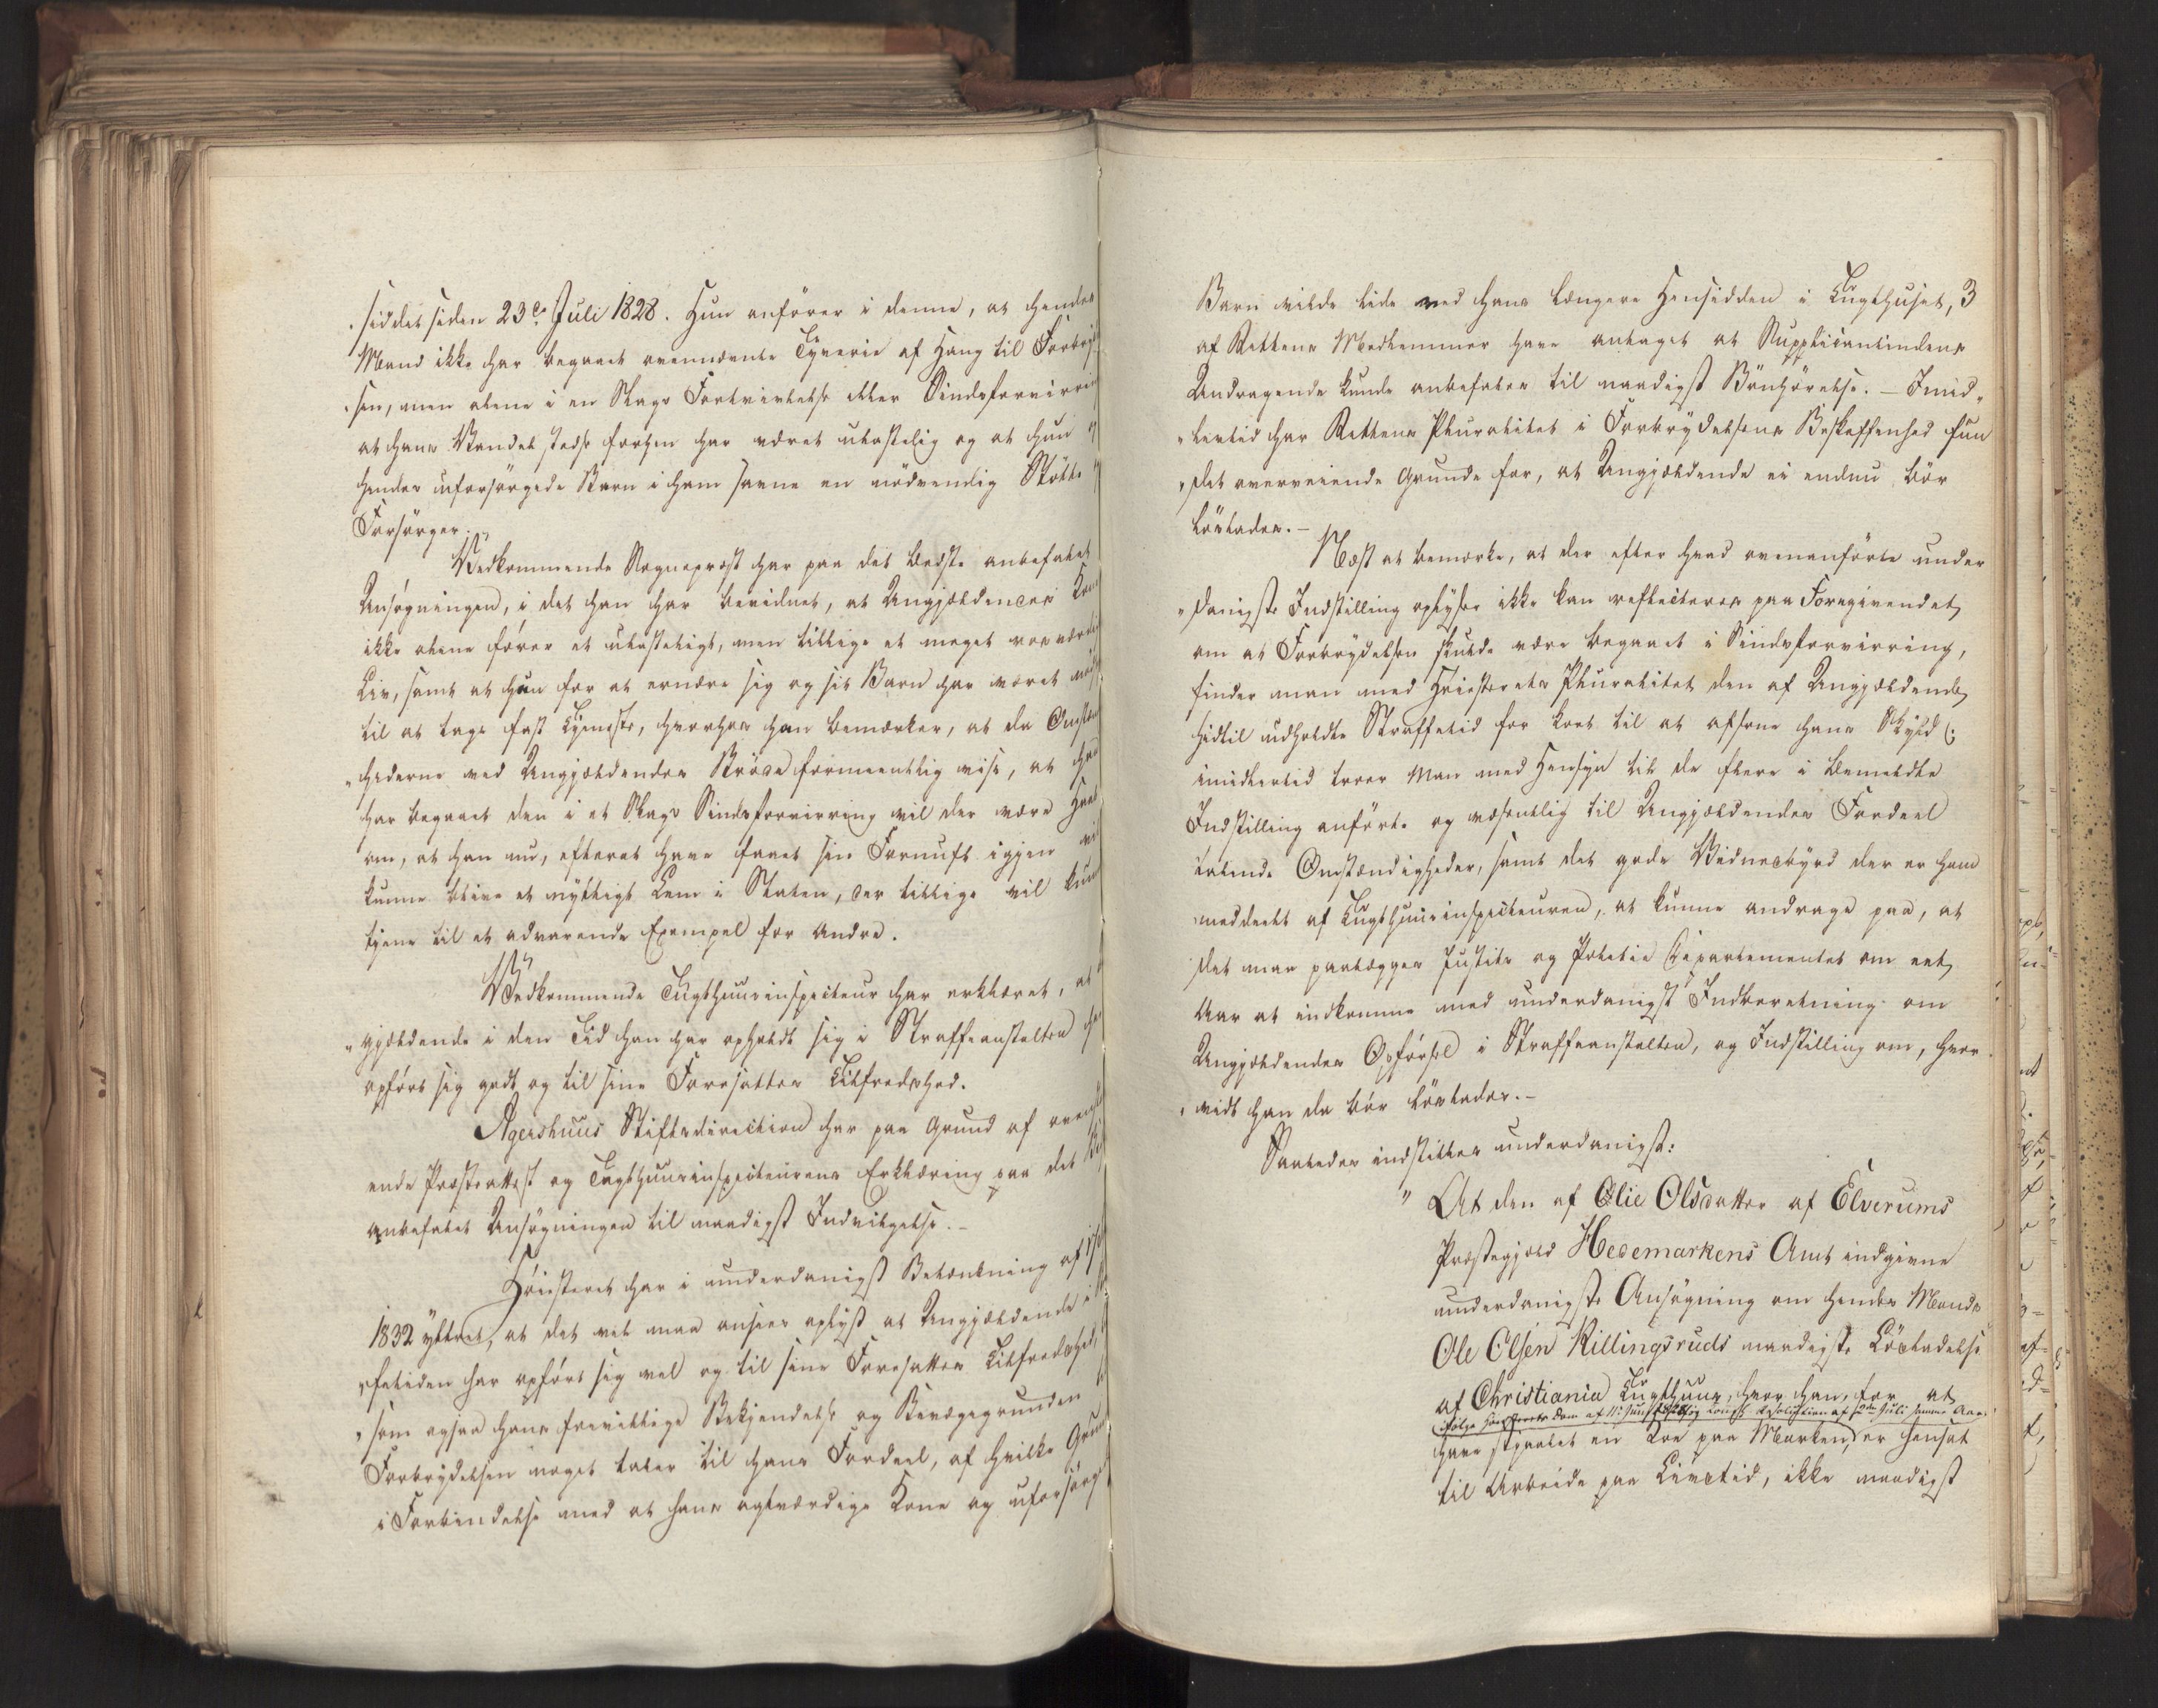 siddet siden 23de Juli 1828. Hun anförer i denne, at hendes
Mand ikke har begaaet ovennævnte Tyverie af Hang til Forbryd
sen, men alene i en Slags Fortvivlelse eller Sindsforvirrin
at hans Vandel stedse forhen har været ulastelig og at hun
hendes uforsörgede Barn i ham savne en nödvendig Stötte
Forsörger.
Vedkommende Sognepræst har paa det Bedste anbefalet
Ansögningen, i det han har bevidnet, at Angjældendes Kone
ikke alene förer et ulasteligt, men tillige et meget rosværdigt
Liv, samt at hun for at ernære sig og sit Barn har været nödt
til at tage fast Tjeneste, hvorhos han bemærker, at da Omstæn
„hederne ved Angjældendes Bröde formeentlig vise, at han
har begaaet den i et Slags Sindsforvirring vil der være Haab
om, at han nu, efterat have faaet sin Fornuft igjen vil
kunne blive et nyttigt Lem i Staten, der tillige vil kunne
tjene til et advarende Exempel for Andre.
Vedkommende Tugthuusinspecteur har erklæret, at
„gjældende i den Tid han har opholdt sig i Straffeanstalten har
opfört sig godt og til sine Foresattes Tilfredshed.
Agershuus Stiftsdirection har paa Grund af oven
ende Præsteattest og Tugthuusinspecteurens Erklæring paa det
anbefalet Ansögningen til naadigst Indvilgelse. -
Höiesteret har i underdanigst Betænkning af
1832 yttret, at det vel maa ansees oplyst at Angjældende i
„fetiden har opfört sig vel og til sine Foresattes Tilfredshed,
„som ogsaa hans frivillige Bekjendelse og Bevæggrunden
Forbrydelsen noget taler til hans Fordeel, af hvilke Grunde
i Forbindelse med at hans agtværdige Kone og uforsörgede
Barn vilde lide ved hans længere Hensidden i Tugthuset, 3
af Rettens Medlemmer have antaget at Supplicantindens
Andragende kunde anbefales til naadigst Bönhörelse. - Imid„
„lertid har Rettens Pluralitet i Forbrydelsens Beskaffenhed fun
„det overveiende Grunde for, at Angjældende ei endnu bör
löslades. -
Næst at bemærke, at der efter hvad ovenanförte under
„danigste Indstilling oplyser ikke kan reflecteres paa Foregivendet
om at Forbrydelsen skulde være begaaet i Sindsforvirring,
finder man med Höiesterets Pluralitet den af Angjældende
hidtil udholdte Straffetid for kort til at afsone hans Skyld;
imidlertid troer Man med Hensyn til de flere i bemeldte
Indstilling anförte og væsentlig til Angjældendes Fordeel
talende Omstændigheder, samt det gode Vidnesbyrd der er ham
meddeelt af Tugthuusinspecteuren, at kunne andrage paa, at
det maa paalægges Justits og Politie Departementet om eet
Aar at indkomme med underdanigst Indberetning om
Angjældendes Opförsel i Straffeanstalten, og Indstilling om, hvor
„vidt han da bör löslades. -
Saaledes indstilles underdanigst:
„At den af Olie Olsdatter af Elverums
Præstegjeld Hedemarkens Amt indgivne
underdanigste Ansögning om hendes Mands
Ole Olsen Killingsruds naadigste Lösladelse
af Christiania Tugthuus, hvor han, for at
ifölge Höiesterets Dom af 11 Juni 1828 og Kongl. Resolution af 2den Juli samme Aar
have stjaalet en Koe paa Marken, er hensat
til Arbeide paa Livstid, ikke naadigst